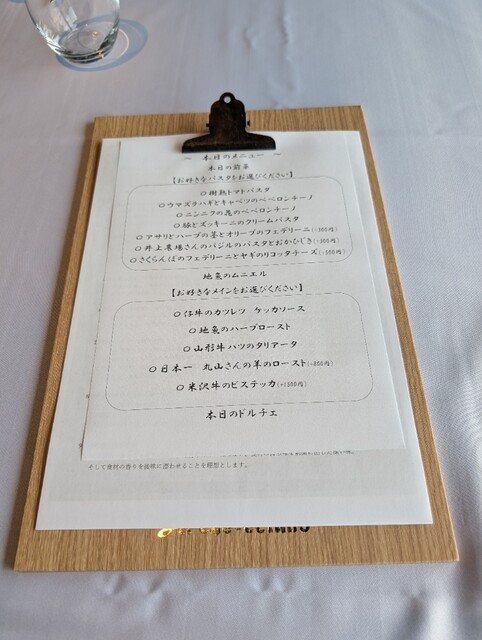 ～ 本日のメニュー ～
本日の前菜
【お好きなパスタをお選びください】
○樹熟トマトパスタ
○ウマズラハギとキャベツのペペロンチーノ
○ニンニクの花のペペロンチーノ
○豚とズッキーニのクリームパスタ
○アサリとハーブの茎とオリーブのフェデリーニ(+300円)
○井上農場さんのバジルのパスタとおかひじき(+300円)
○さくらんぼのフェデリーニとヤギのリコッタチーズ(+500円)
地魚のムニエル
【お好きなメインをお選びください】
○仔牛のカツレツ ケッカソース
○地魚のハーブロースト
○山形牛ハツのタリアータ
○日本一 丸山さんの羊のロースト(+800円)
○米沢牛のビステッカ(+1500円)
本日のドルチェ
そして食材の香りを後味に漂わせることを理想とします。